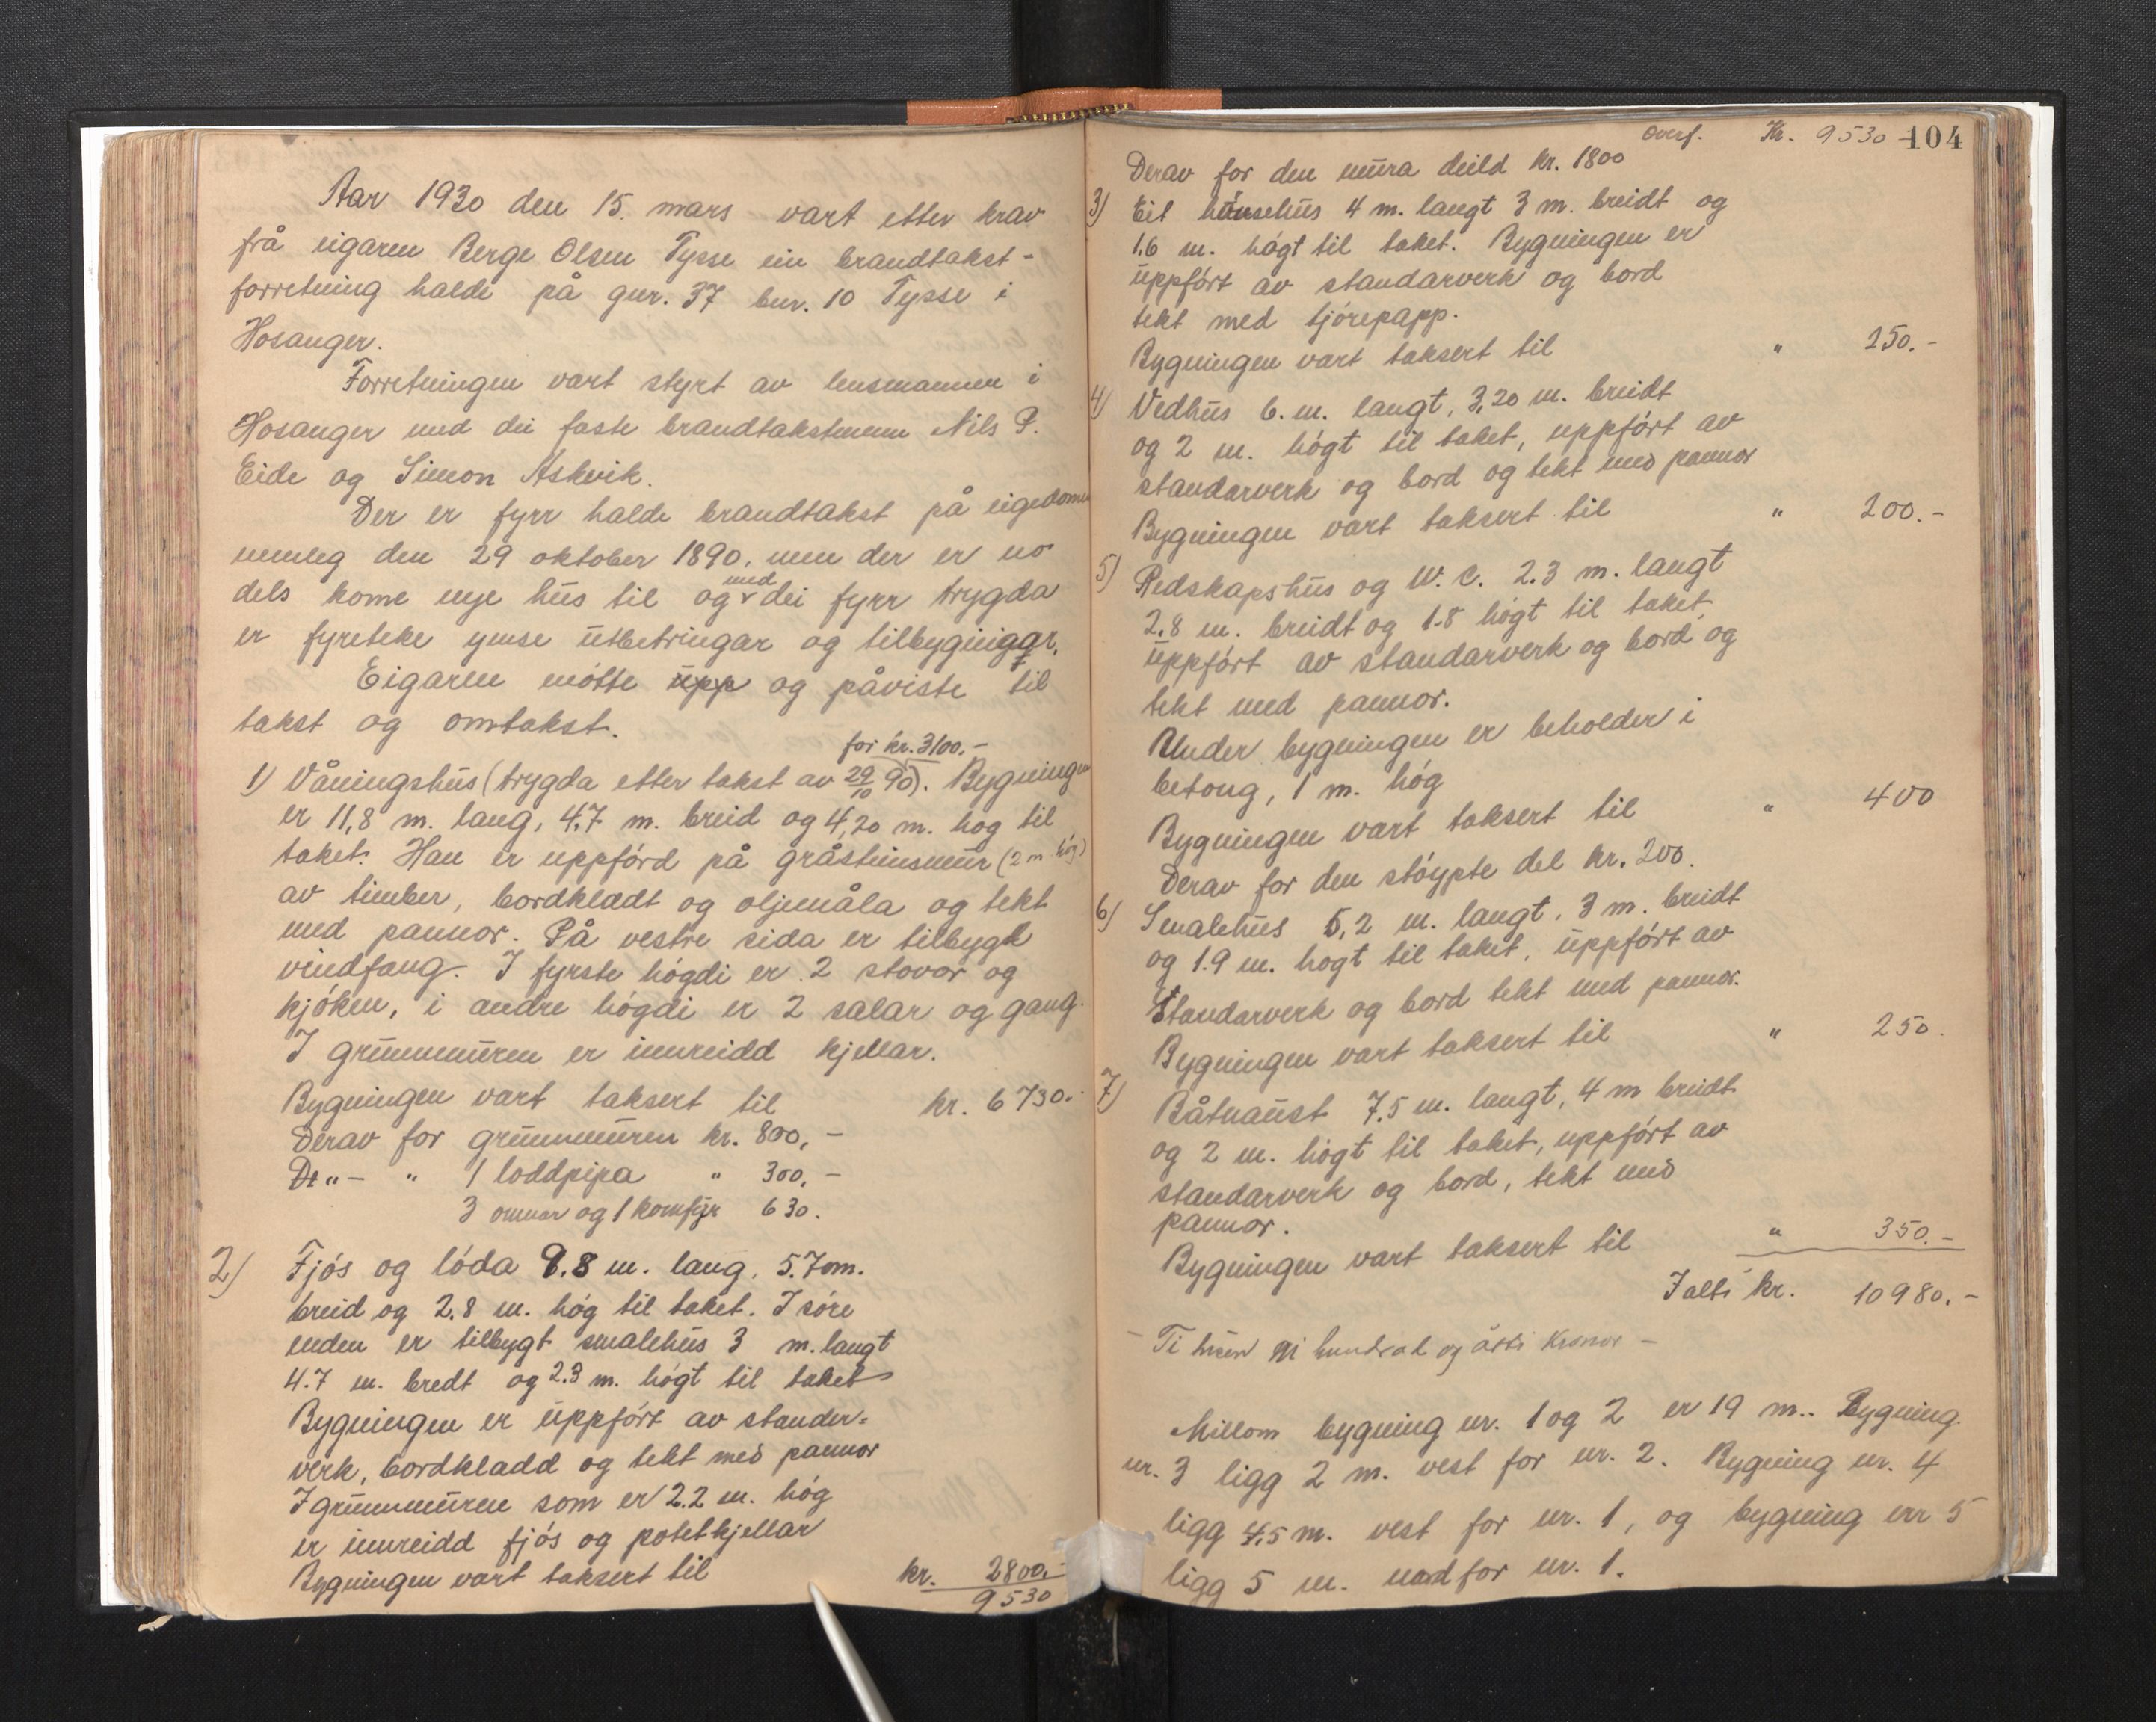 Aar 1930 den 15. mars vart etter krav
frå eigaren Berge Olsen Tysse ein brandtakst-
forretning halde på gnr. 37 bnr. 10 Tysse i
Hosanger.
Forretningen vart styrt av lensmannen i
Hosanger med dei faste brandtakstmenn Nils P.
Eide og Simon Askvik.
Der er fyrr halde brandtakst på eigedomen
nemleg den 29 oktober 1890, men der er no
dels kome nye hus til og med dei fyrr trygda
er fyreteke ymse utbetringar og tilbygningar.
Eigaren møtte upp og påviste til
takst og omtakst.
for kr. 3100.-
1) Våningshus (trygda etter takst av 29/10 90). Bygningen
er 11,8 m. lang, 4.7 m. breid og 4,20 m. høg til
taket. Han er uppførd på gråsteinsmur (2 m høg)
av timber, bordklædt og oljemåla og tekt
med pannor. På vestre sida er tilbygt
vindfang. I fyrste høgdi er 2 stovor og
kjøken, i andre høgdi er 2 salar og gang.
I grunnmuren er innreidd kjellar.
Bygningen vart taksert til kr. 6730.-
Derav for grunnmuren kr. 800,-
De "- " 1 loddpipa " 300,-
3 omnar og 1 komfyr 630.
2) Fjøs og løda 9.8 m. lang, 5.70m.
breid og 2.8 m. høg til taket. I søre
enden er tilbygt smalehus 3 m. langt
4.7 m. bredt og 2.3 m. høgt til taket
Bygningen er uppført av stander-
verk, bordkladd og tekt med pannor
I grunnmuren som er 2.2 m. høg
er innreidd fjøs og potetkjellar
Bygningen vart taksert til kr. 2800.-
9530
Overf. Kr. 9530 104
Derav for den mura deild kr. 1800
3) Eit hønsehus 4 m. langt 3 m. breidt og
1.6 m. høgt til taket. Bygningen er
uppført av standarverk og bord
tekt med tjørepapp.
Bygningen vart taksert til " 250.-
4) Vedhus 6. m. langt, 3,20 m. breidt
og 2 m. høgt til taket, uppført av
standarverk og bord og tekt med pannor
Bygningen vart taksert til " 200.-
5) Redskapshus og W. C. 2.3 m. langt
2.8 m. breidt og 1.8 høgt til taket,
uppført av standarverk og bord og
tekt med pannor.
Under bygningen er beholder i
betong, 1 m. høg
Bygningen vart taksert til " 400
Derav for den støypte del kr. 200.
6) Smalehus 5,2 m. langt, 3 m. breidt
og 1.9 m. høgt til taket, uppført av
Standarverk og bord tekt med pannor.
Bygningen vart taksert til " 250.
7) Båtnaust 7.5 m. langt, 4 m breidt
og 2 m. høgt til taket, uppført av
standarverk og bord, tekt med
pannor.
Bygningen vart taksert til " 350.-
I alt kr. 10980.-
- Ti tusen ni hundrad og åtti kronor -
Millom bygning nr. 1 og 2 er 19 m.. Bygning
nr. 3 ligg 2 m. vest for nr. 2. Bygning nr. 4
ligg 4,5 m. vest for nr. 1, og bygning nr 5
ligg 5 m. nord for nr. 1.